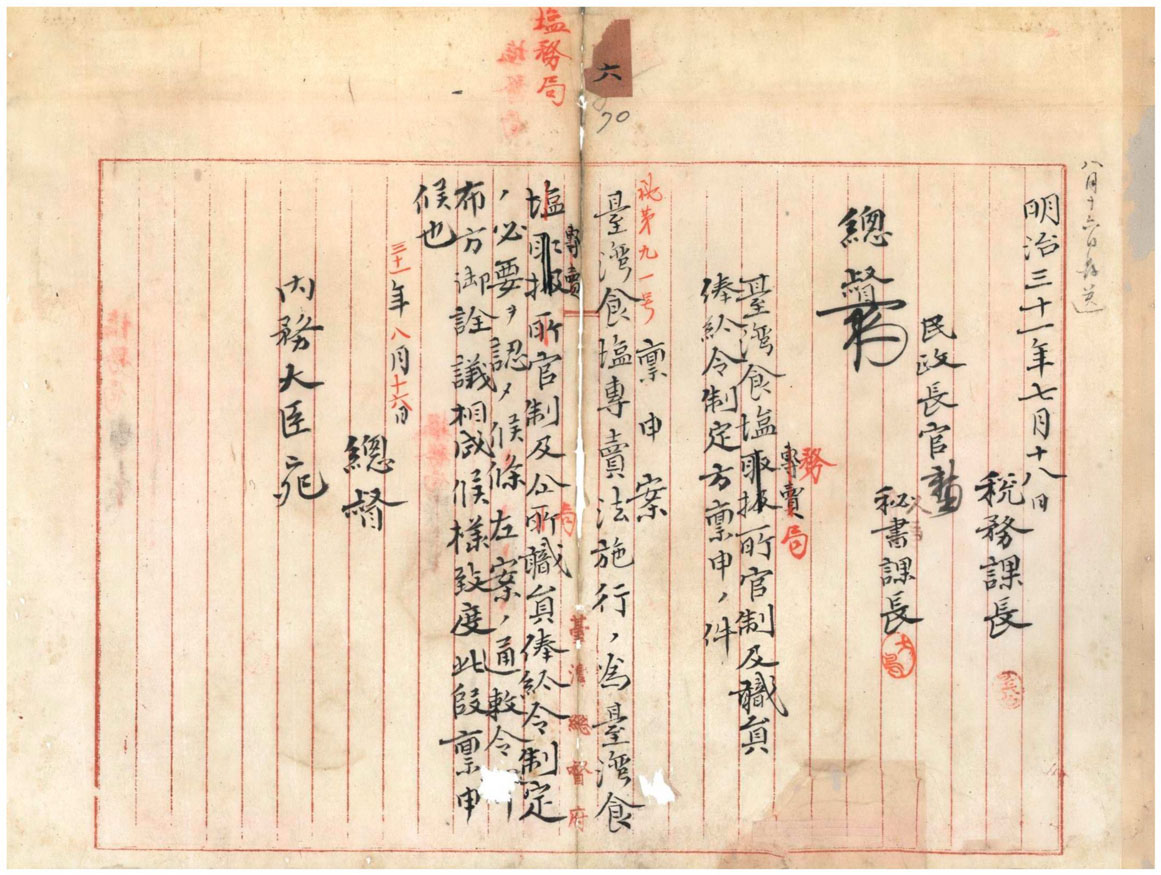 塩務局
六
70
八月十六日発送
明治三十一年七月十八日
税務課長
民政長官
秘書課長
總督
務
專賣局
臺灣食塩取扱所官制及職員
俸給令制定方稟申ノ件
秘第九一号
稟申案
臺灣食塩專賣法施行ノ為臺灣食
專賣
塩取扱所官制及仝所職員俸給令制定
局
ノ必要ヲ認メ候條左案ノ通敕令
布方御詮議相成候様致度此段稟申
候也
三十一年八月十六日
總督
内務大臣宛
臺灣總督府